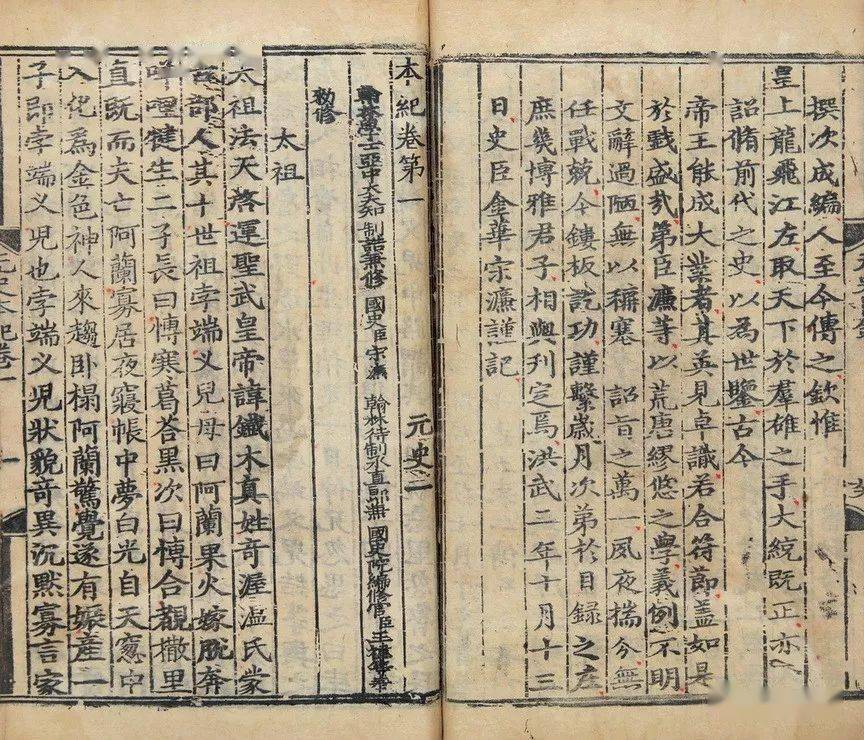 撰次成編人至今傳之欽惟
皇上龍飛江左取天下於羣雄之手大統既正亦
詔脩前代之史以為世鑒古今
帝王能成大業者其英見卓識若合符節蓋如是
於戲盛哉第臣濂等以荒唐繆悠之學義例不明
文辭過陋無以稱塞 詔旨之萬一夙夜揣分無
任戰兢今鏤板訖功謹繫歲月次第於目錄之左
庶幾博雅君子相與刊定焉洪武二年十月十三
日史臣金華宋濂謹記
本紀卷第一 元史
翰林學士亞中大夫知 制誥兼修 國史臣宋濂 翰林待制承直郎兼 國史院編修官臣王禕等奉
敕修
太祖
太祖法天啓運聖武皇帝諱鐵木真姓奇渥温氏蒙
古部人其十世祖孛端义兒母曰阿蘭果火嫁脫奔
咩哩犍生二子長曰博寒葛荅黑次曰博合覩撒里
直既而夫亡阿蘭寡居夜寢帳中夢白光自天窻中
入化為金色神人來趨卧榻阿蘭驚覺遂有娠產一
子即孛端义兒也孛端义兒狀貌奇異沉默寡言家
元史本紀卷一
一